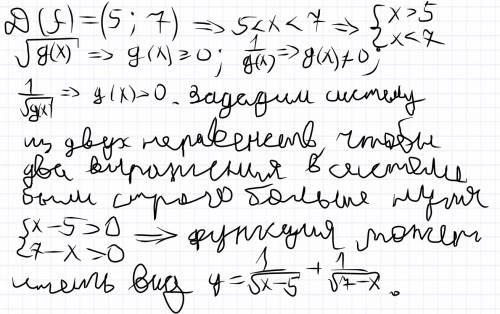 D(f)=(5; 7) => 5<x<7 => {x>5 x<7
√g(x) => g(x)≥0; 1/g(x) => g(x)≠0;
1/√g(x) => g(x)>0. Зададим систему
из двух неравенств, чтобы
два выражения в системы
были строго больше нуля
{x-5>0 7-x>0 => функция может
иметь вид y=1/√x-5 + 1/√7-x.